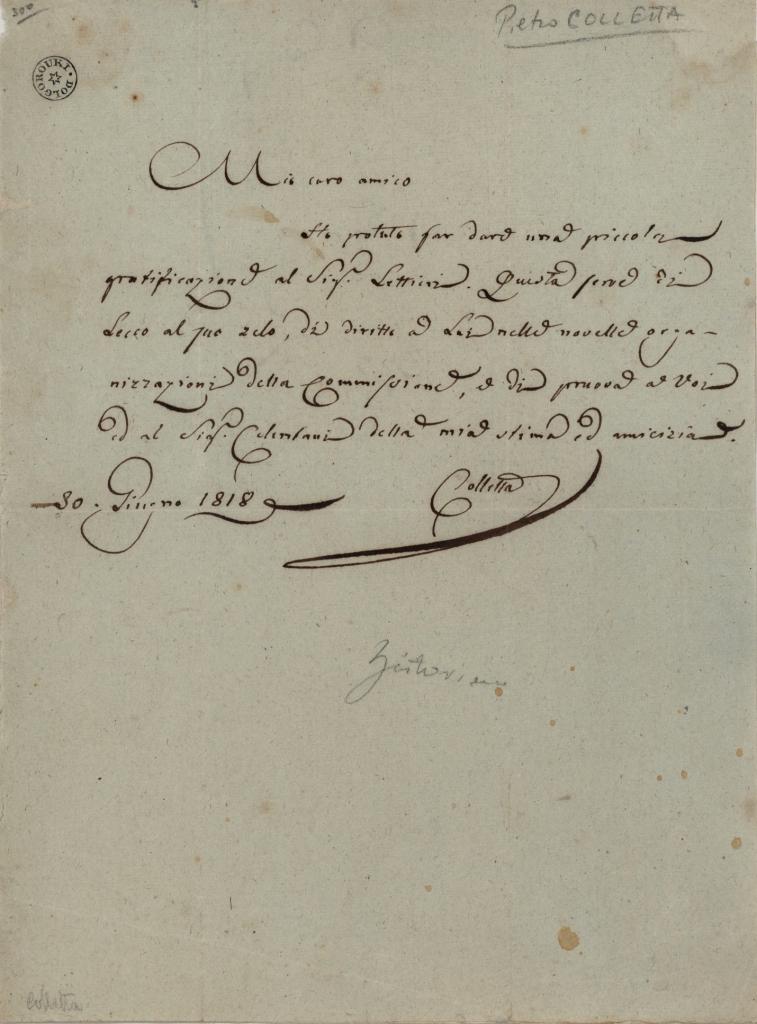 300
Pietro COLLETTA
DOLGOROUKI
Mio caro amico
Ho potuto far dare una piccola
gratificazione al Sigr. Lettieri. Questa serve di
Lecco al suo zelo, di diritto a Lui nelle novelle orga-
nizzazioni della Commissione, e di pruova a Voi
ed al Sigr. Celentani della mia stima ed amicizia.
30. Giugno 1818
Colletta
Colletta